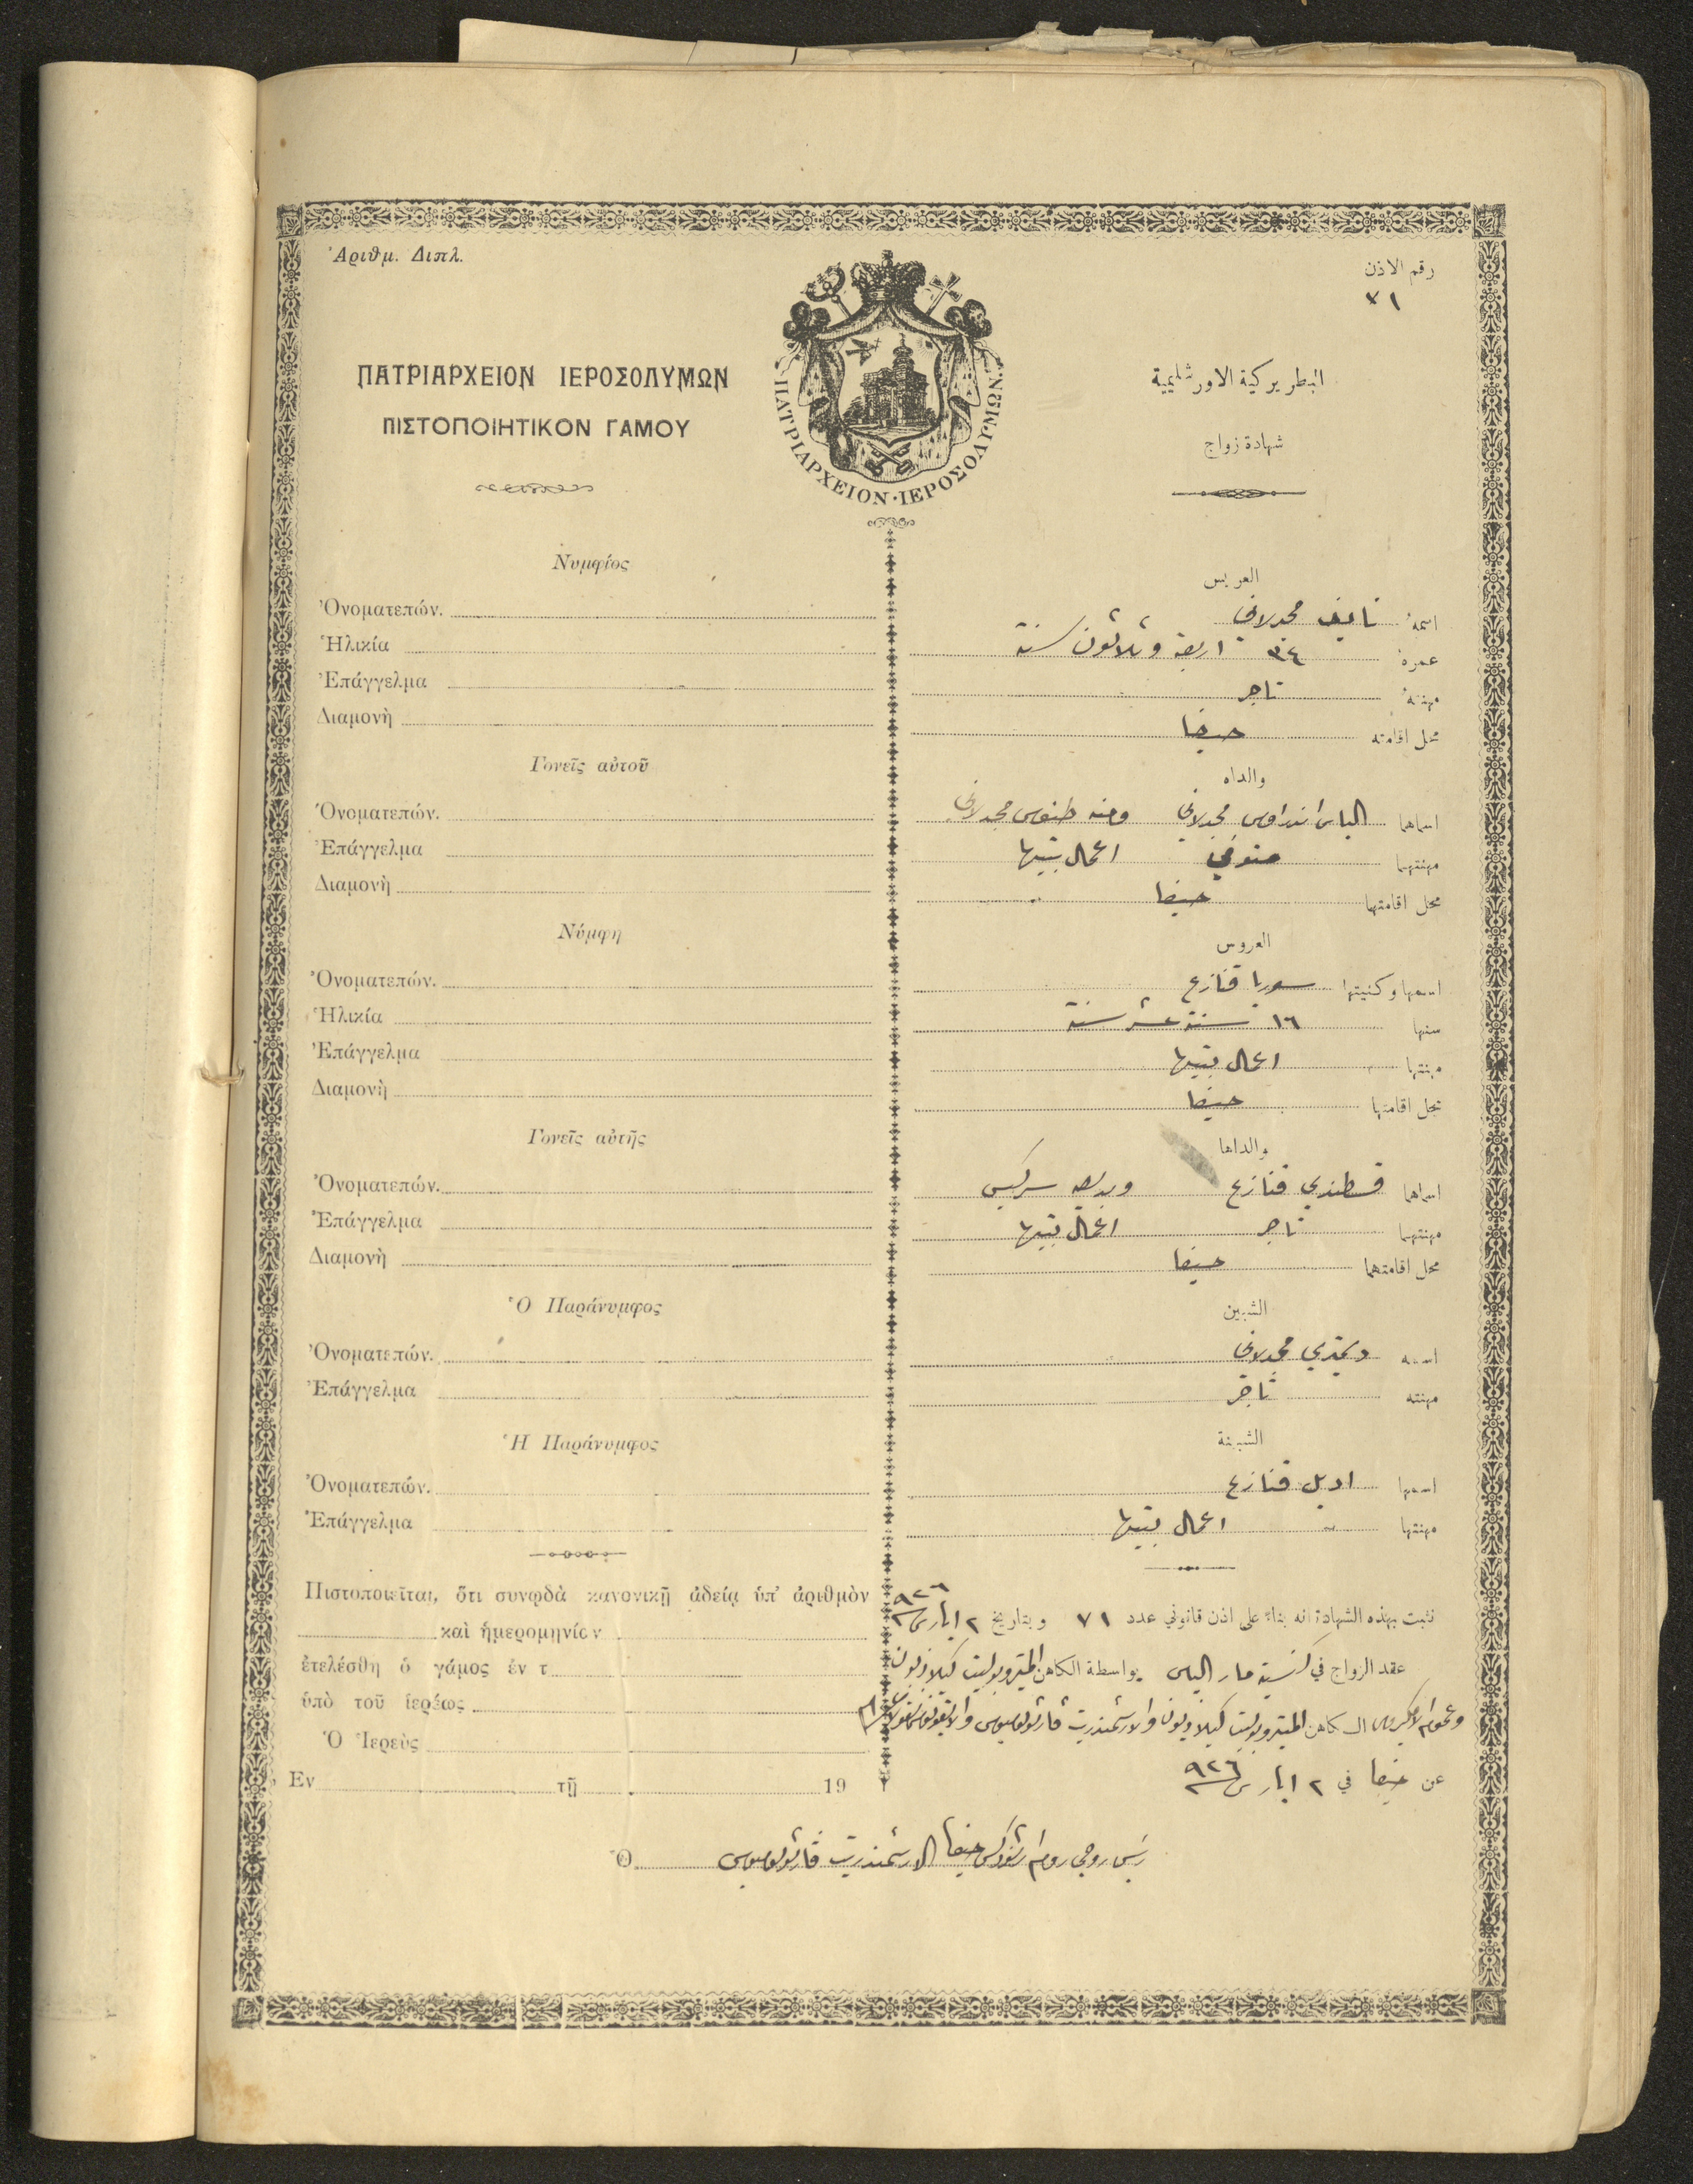 Ἀριθμ. Διπλ.
رقم الاذن
٧١
ΠΑΤΡΙΑΡΧΕΙΟΝ ΙΕΡΟΣΟΛΥΜΩΝ
ΠΙΣΤΟΠΟΙΗΤΙΚΟΝ ΓΑΜΟΥ
ΠΑΤΡΙΑΡΧΕΙΟΝ·ΙΕΡΟΣΟΛΥΜΩΝ.
البطريركية الاورشليمية
شهادة زواج
Νυμφίος
Ὀνοματεπών.
Ἡλικία
Ἐπάγγελμα
Διαμονὴ
Γονεῖς αὐτοῦ
Ὀνοματεπών.
Ἐπάγγελμα
Διαμονὴ
Νύμφη
Ὀνοματεπών.
Ἡλικία
Ἐπάγγελμα
Διαμονὴ
Γονεῖς αὐτῆς
Ὀνοματεπών.
Ἐπάγγελμα
Διαμονὴ
Ὁ Παράνυμφος
Ὀνοματεπών.
Ἐπάγγελμα
Ἡ Παράνυμφος
Ὀνοματεπών.
Ἐπάγγελμα
Πιστοποιεῖται, ὅτι συνῳδὰ κανονικῇ ἀδείᾳ ὑπ' ἀριθμὸν
καὶ ἡμερομηνίον
ἐτελέσθη ὁ γάμος ἐν τ
ὑπὸ τοῦ ἱερέως
Ὁ Ἱερεὺς
Ἐν τῇ 19
العريس
اسمهُ نايف مجدلاني
عمره ٣٤ اربعة وثلاثون سنة
مهنتهُ تاجر
محل اقامته حيفا
والداه
اسماهما الياس اندراوس مجدلاني وحنه طنوس مجدلاني
مهنتهما متوفي اعمال بيتها
محل اقامتهما حيفا
العروس
اسمها وكنيتها سوريا قنازع
سنها ١٦ ستة عشر سنة
مهنتها اعمال بيتها
محل اقامتها حيفا
والداها
اسماهما قسطندي قنازع وبديعه سركيس
مهنتهما تاجر اعمال بيتها
محل اقامتهما حيفا
الشبين
اسمه ديمتري مجدلاني
مهنته تاجر
الشبينة
اسمها اديل قنازع
مهنتها اعمال بيتها
نثبت بهذه الشهادة انه بناءً على اذن قانوني عدد ٧١ وبتاريخ ٢ ايار س ٩٢٦
عقد الزواج في كنيسة مار الياس بواسطة الكاهن المتروبوليت كيلاذيون
الكاهن المتروبوليت كيلاذيون والارشمندريت
عن حيفا في ٢ ايار س ٩٢٦
Ὁ رئيس روحي روم ارثوذكس حيفا الارشمندريت